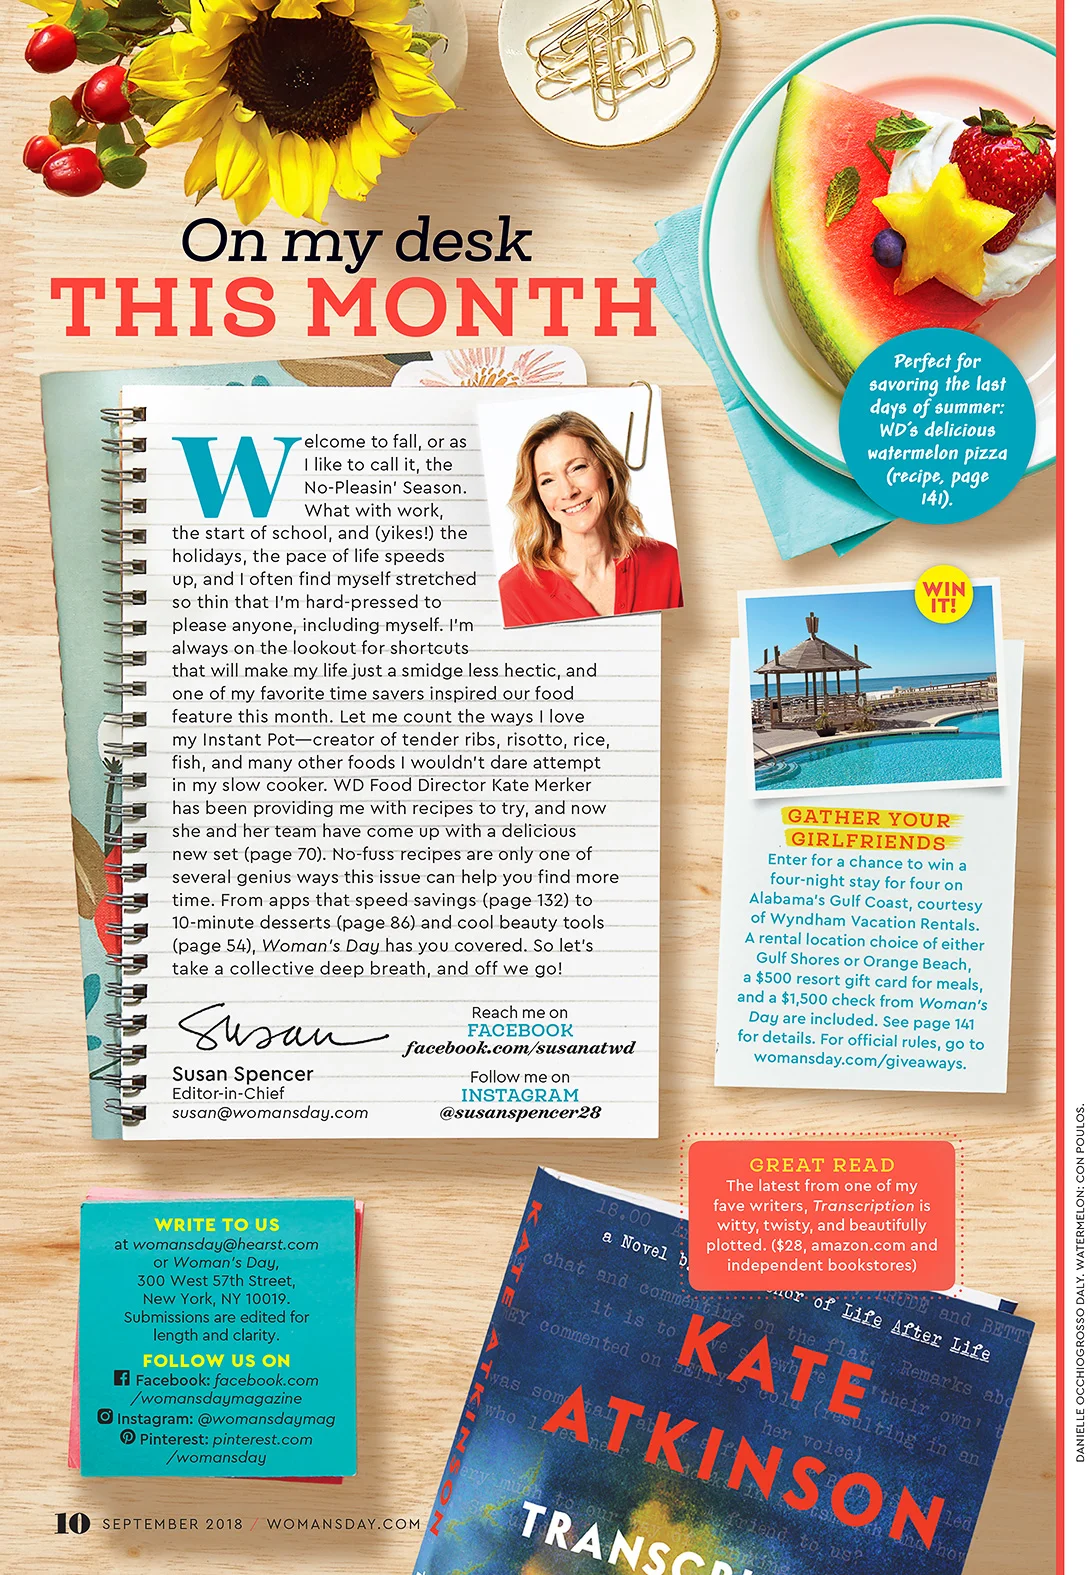 On my desk
THIS MONTH
Welcome to fall, or as
I like to call it, the
No-Pleasin' Season.
What with work,
the start of school, and (yikes!) the
holidays, the pace of life speeds
up, and I often find myself stretched
so thin that I'm hard-pressed to
please anyone, including myself. I'm
always on the lookout for shortcuts
that will make my life just a smidge less hectic, and
one of my favorite time savers inspired our food
feature this month. Let me count the ways I love
my Instant Pot—creator of tender ribs, risotto, rice,
fish, and many other foods I wouldn't dare attempt
in my slow cooker. WD Food Director Kate Merker
has been providing me with recipes to try, and now
she and her team have come up with a delicious
new set (page 70). No-fuss recipes are only one of
several genius ways this issue can help you find more
time. From apps that speed savings (page 132) to
10-minute desserts (page 86) and cool beauty tools
(page 54), Woman's Day has you covered. So let's
take a collective deep breath, and off we go!
Susan
Susan Spencer
Editor-in-Chief
susan@womansday.com
Reach me on
FACEBOOK
facebook.com/susanatwd
Follow me on
INSTAGRAM
@susanspencer28
Perfect for
savoring the last
days of summer:
WD's delicious
watermelon pizza
(recipe, page
141).
WIN
IT!
GATHER YOUR
GIRLFRIENDS
Enter for a chance to win a
four-night stay for four on
Alabama's Gulf Coast, courtesy
of Wyndham Vacation Rentals.
A rental location choice of either
Gulf Shores or Orange Beach,
a $500 resort gift card for meals,
and a $1,500 check from Woman's
Day are included. See page 141
for details. For official rules, go to
womansday.com/giveaways.
GREAT READ
The latest from one of my
fave writers, Transcription is
witty, twisty, and beautifully
plotted. ($28, amazon.com and
independent bookstores)
WRITE TO US
at womansday@hearst.com
or Woman's Day,
300 West 57th Street,
New York, NY 10019.
Submissions are edited for
length and clarity.
FOLLOW US ON
Facebook: facebook.com
/womansdaymagazine
Instagram: @womansdaymag
Pinterest: pinterest.com
/womansday
a Novel
of Life After Life
KATE
ATKINSON
TRANSCRI
KATE ATKINSON
10 SEPTEMBER 2018 / WOMANSDAY.COM
DANIELLE OCCHIOGROSSO DALY. WATERMELON: CON POULOS.